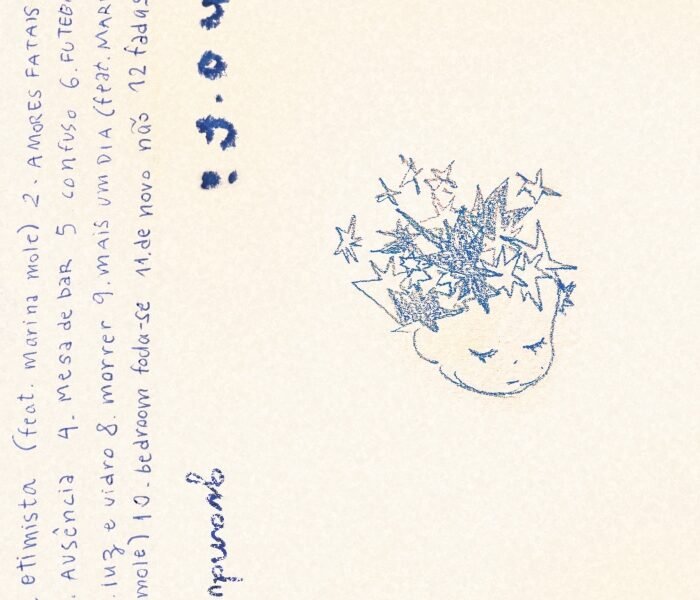 etimista (feat. marina mole) 2. AMORES FATAIS
AUSÊNCIA 4. mesa de baR 5 confuso 6. FUTEBO
luz e vidro 8. morrer 9. mais um DIA (feat. MARI
mole) 10. bedroom foda-se 11. de novo não 12 fadas
quando